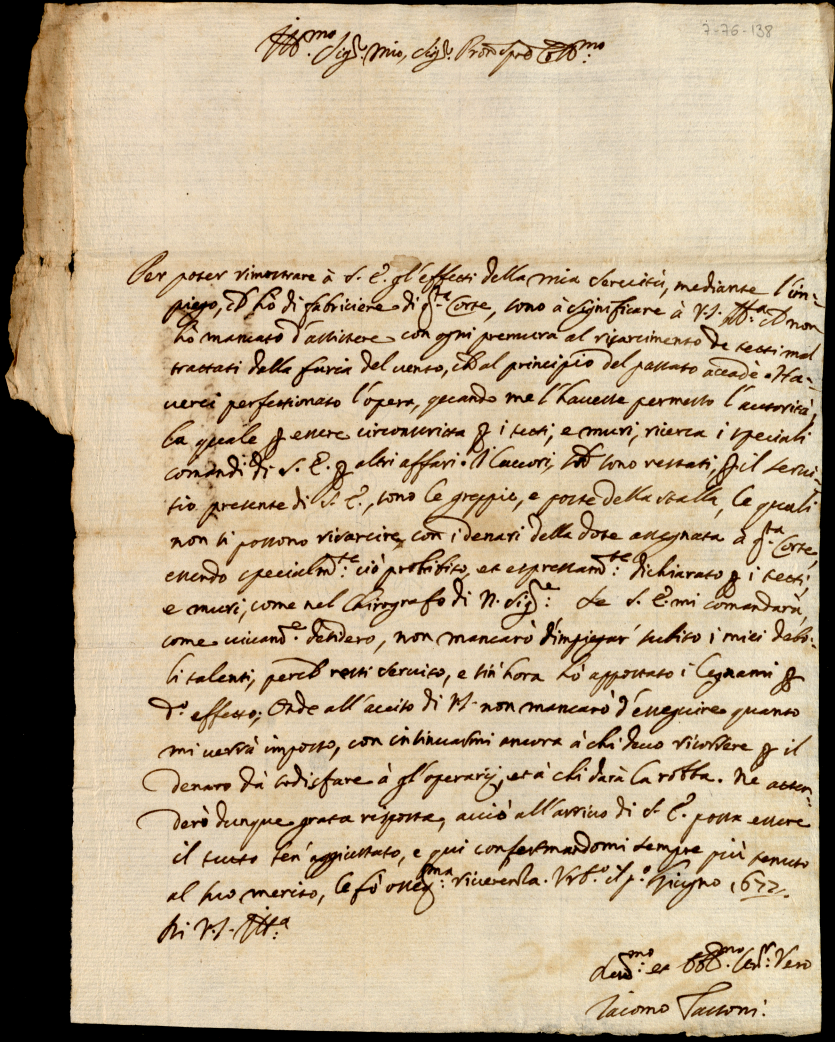 7-76-138
Ill.mo Sig.r mio, Sig.r Pron Col.mo
Per poter rimostrare à S. E. gl'effetti della mia servitù, mediante l'im-
piego, ch'hò di fabriciere di q.ta Corte, sono à significare à V.S. Ill.a ch non
hò mancato d'assistere con ogni premura al risarcimento de tetti mal
trattati dalla furia del vento, ch al principio del passato accadè. Ha-
verei perfettionato l'opera, quando me l'havesse permesso l'autorità,
la quale p essere circonscritta p i tetti, e muri, ricerca i speciali
comandi di S. E. p altri affari. I lavori, ch sono restati, p il servi-
tio presente di S. E., sono le greppie, e poste della stalla, le quali
non si possono risarcire con i denari della dote assegnata à q.ta Corte,
essendo specialm.te ciò prohibito, et espressam.te dichiarato p i tetti,
e muri, come nel Chirografo di N. Sig.e Se S. E. mi comandarà,
come vivam.e desidero, non mancarò d'impiegar' subito i miei debo-
li talenti, perch resti servito, e sin'hora hò appostato i legnami p
d.o effetto; Onde all'aviso di V.S. non mancarò d'esseguire quanto
mi verrà imposto, con intimarmi ancora à chi devo ricorrere p il
denaro dà sodisfare à gl'operarij, et à chi darà la robba. Ne atten-
derò dunque grata risposta, acciò all'arrivo di S. E. possa essere
il tutto ben'aggiustato, e qui confermandomi sempre più tenuto
al suo merito, le fò osseq.ma riverenza. Urb.o il p.o Giugno 1672.
Di V.S. Ill.a
Dev.mo et Obl.mo Ser.r Vero
Iacomo Tassoni.